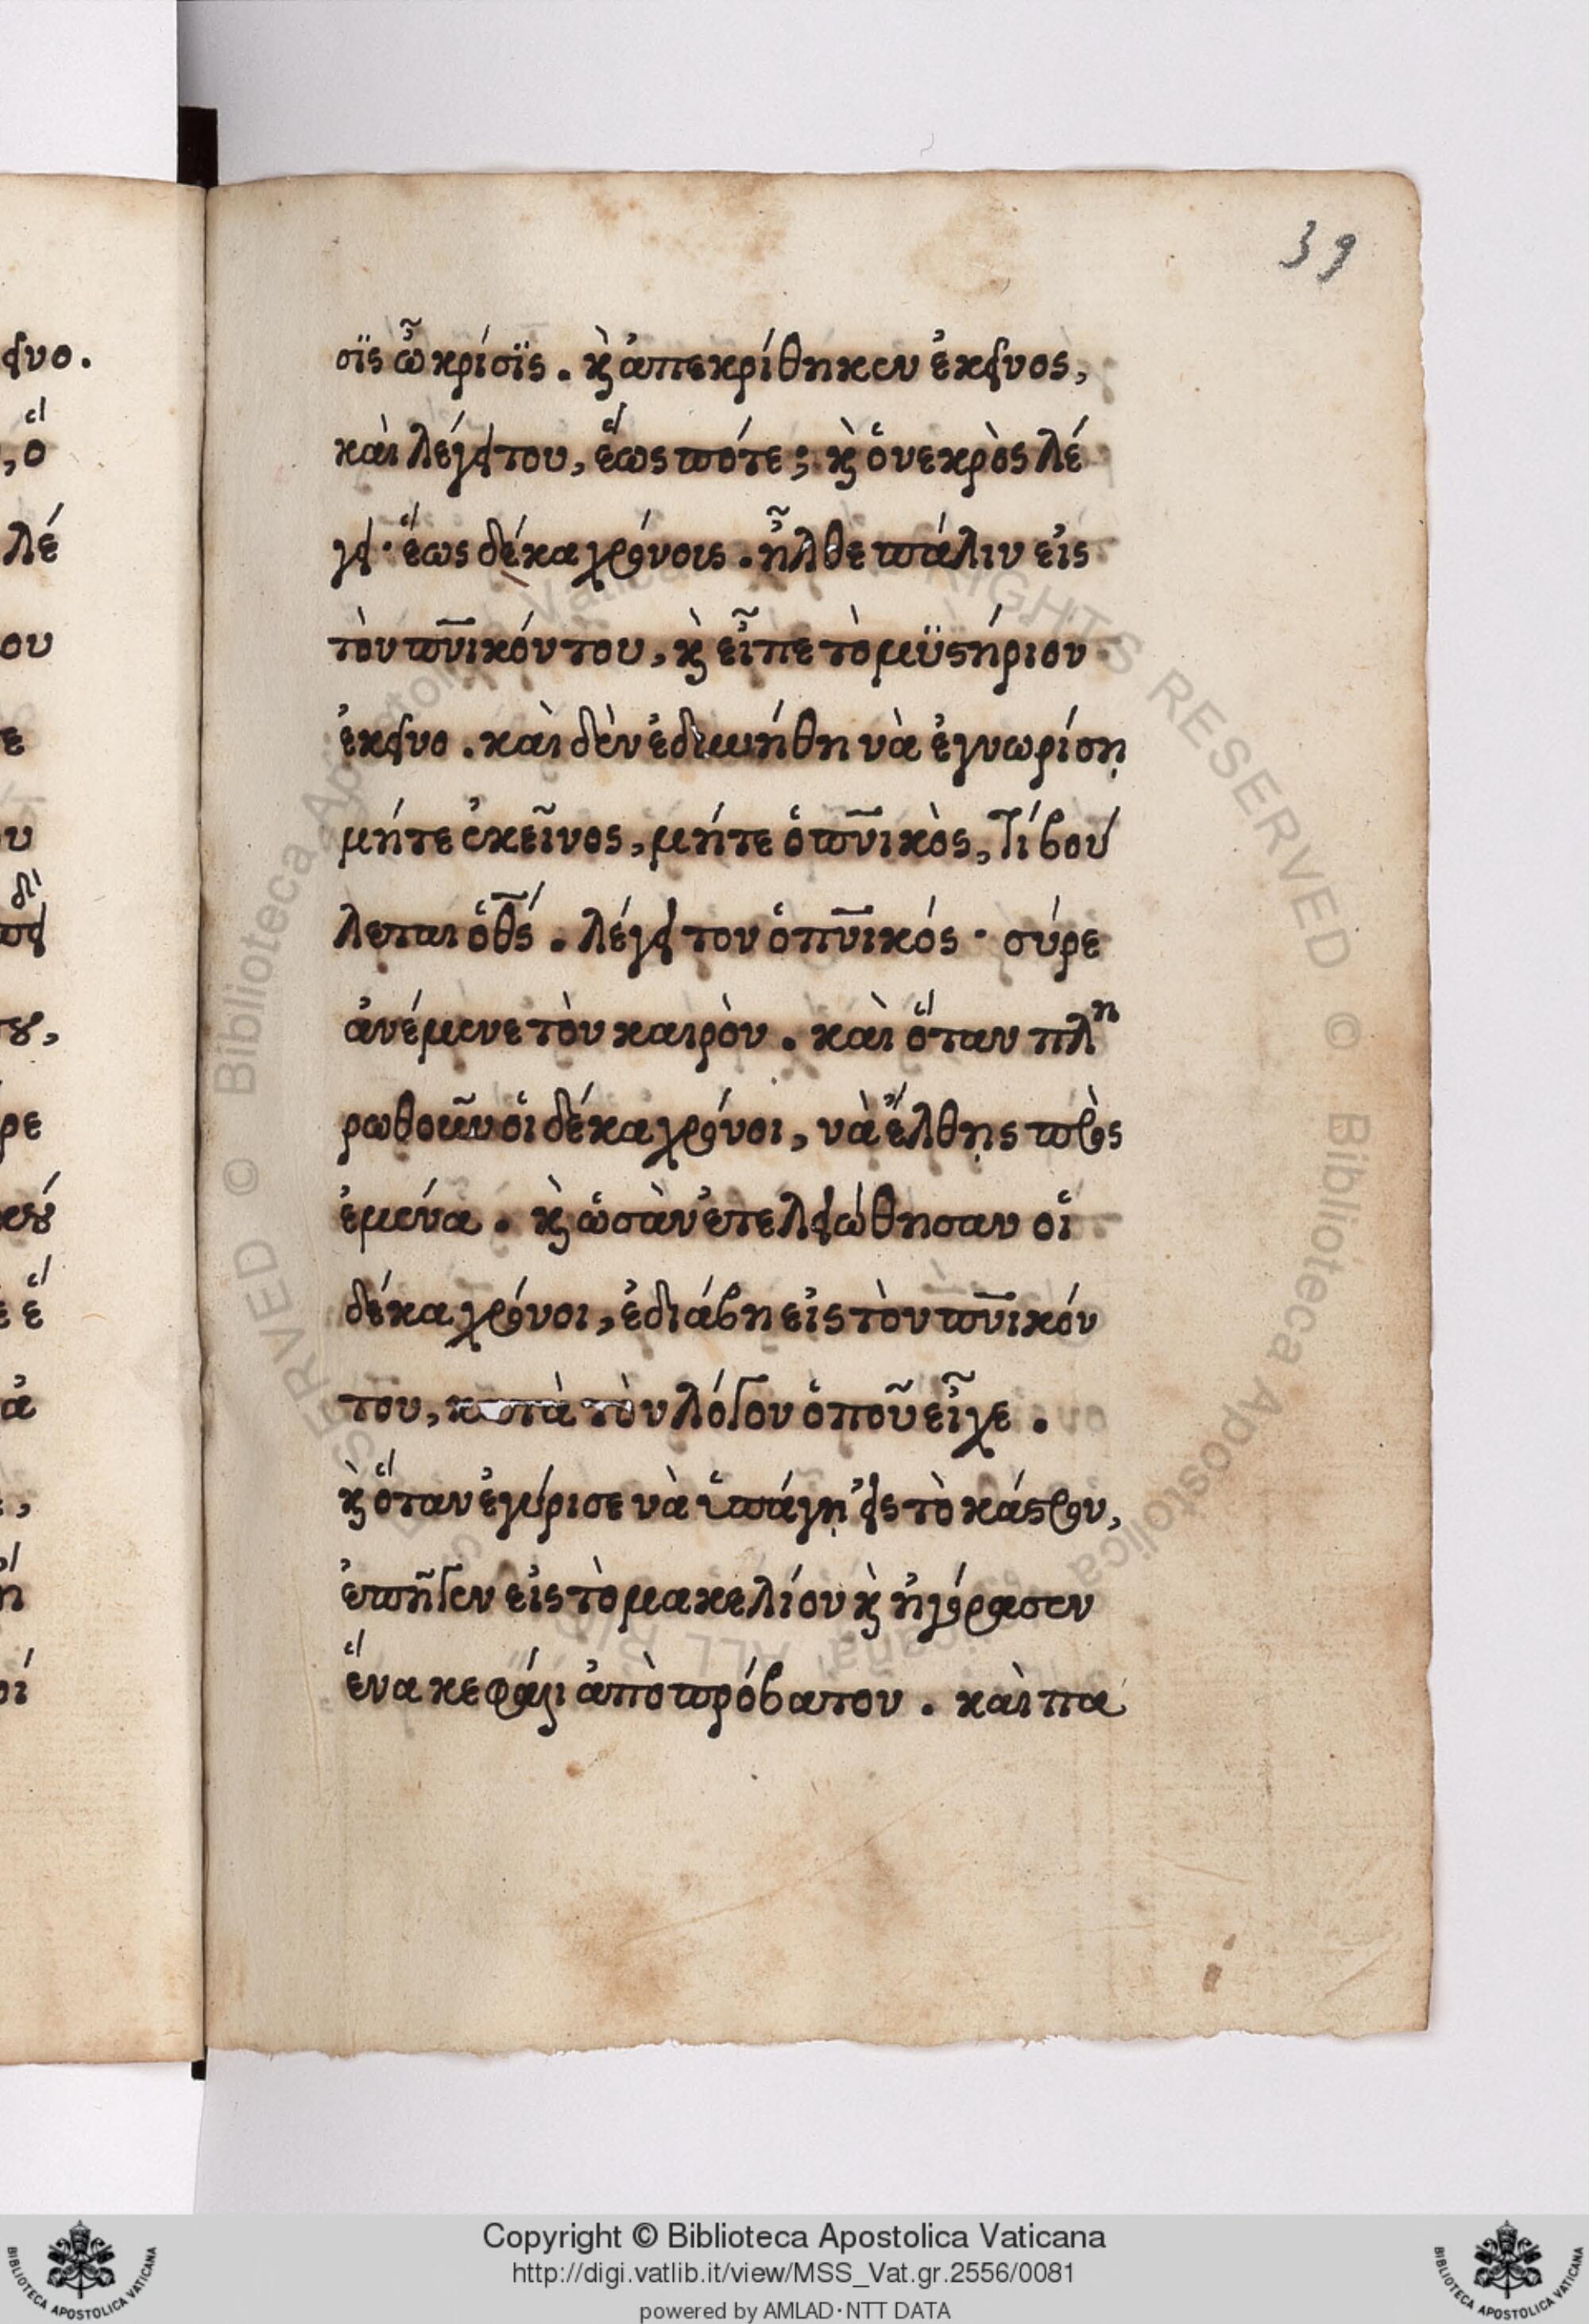 39
σϊς ὦ κρίσϊς. κ̀ ἀπεκρίθηκεν ἐκεῖνος,
καὶ λέγει του, ἕως πότε; κ̀ ὁ νεκρὸς λέ
γει· ἕως δέκα χρόνοις. ἦλθε πάλιν εἰς
τὸν πν̅ικόν του, κ̀ εἶπε τὸ μϋστήριον
ἐκεῖνο. καὶ δὲν ἐδυνήθη νὰ ἐγνωρίσῃ
μήτε ἐκεῖνος, μήτε ὁ πν̅ικὸς, τί βού
λεται ὁ θς̅. λέγει τον ὁ πν̅ικός· σύρε
ἀνέμενε τὸν καιρὸν. καὶ ὅταν πλη
ρωθοῦν οἱ δέκα χρόνοι, νὰ ἔλθῃς πρὸς
ἐμένα. κ̀ ὡσὰν ἐτελειώθησαν οἱ
δέκα χρόνοι, ἐδιάβη εἰς τὸν πν̅ικόν
του, κατὰ τὸν λόγον ὁποῦ εἶχε.
κ̀ ὅταν ἐγύρισε νὰ ὑπάγῃ εἰς τὸ κάστρον,
ἐπῆγεν εἰς τὸ μακελίον κ̀ ἠγόρασεν
ἕνα κεφάλι ἀπὸ πρόβατον. καὶ πα
Copyright © Biblioteca Apostolica Vaticana
http://digi.vatlib.it/view/MSS_Vat.gr.2556/0081
powered by AMLAD·NTT DATA